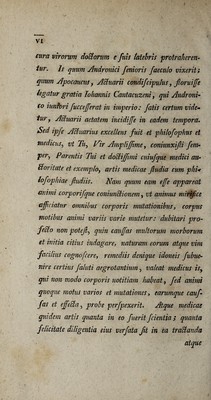 VI
cura virorum doctorum e suis latebris protraherentur.
Is quum Andronici senioris saeculo vixerit;
quum Apocaucus, Actuarii condiscipulus, floruisse
legatur gratia Iohannis Cantacuzeni, qui Androni-
co iuniori successerat in imperio: satis certum vide-
tur, Actuarii aetatem incidisse in eadem tempora.
Sed ipse Actuarius excellens fuit et philosophus et
medicus, et Tu, Vir Amplissime, coniunxisti sem-
per, Parentis Tui et doctissimi cuiusque medici au-
ctoritate et exemplo, artis medicae studia cum phi-
losophiae studiis. Nam quum eam esse appareat
animi corporisque coniunctionem, ut animus
afficiatur omnibus corporis mutationibus, corpus
motibus animi variis varie mutetur: dubitari pro-
fecto non potest, quin caussas multorum morborum
et initia citius indagare, naturam eorum atque vim
facilius cognoscere, remediis denique idoneis subue-
nire certius saluti aegrotantium, valeat medicus is,
qui non modo corporis notitiam habeat, sed animi
quoque motus varios et mutationes, earumque caus-
sas et effecta, probe perspexerit. Atque medicae
quidem artis quanta in eo fuerit scientia; quanta
felicitate diligentia eius versata sit in ea tractanda
atque